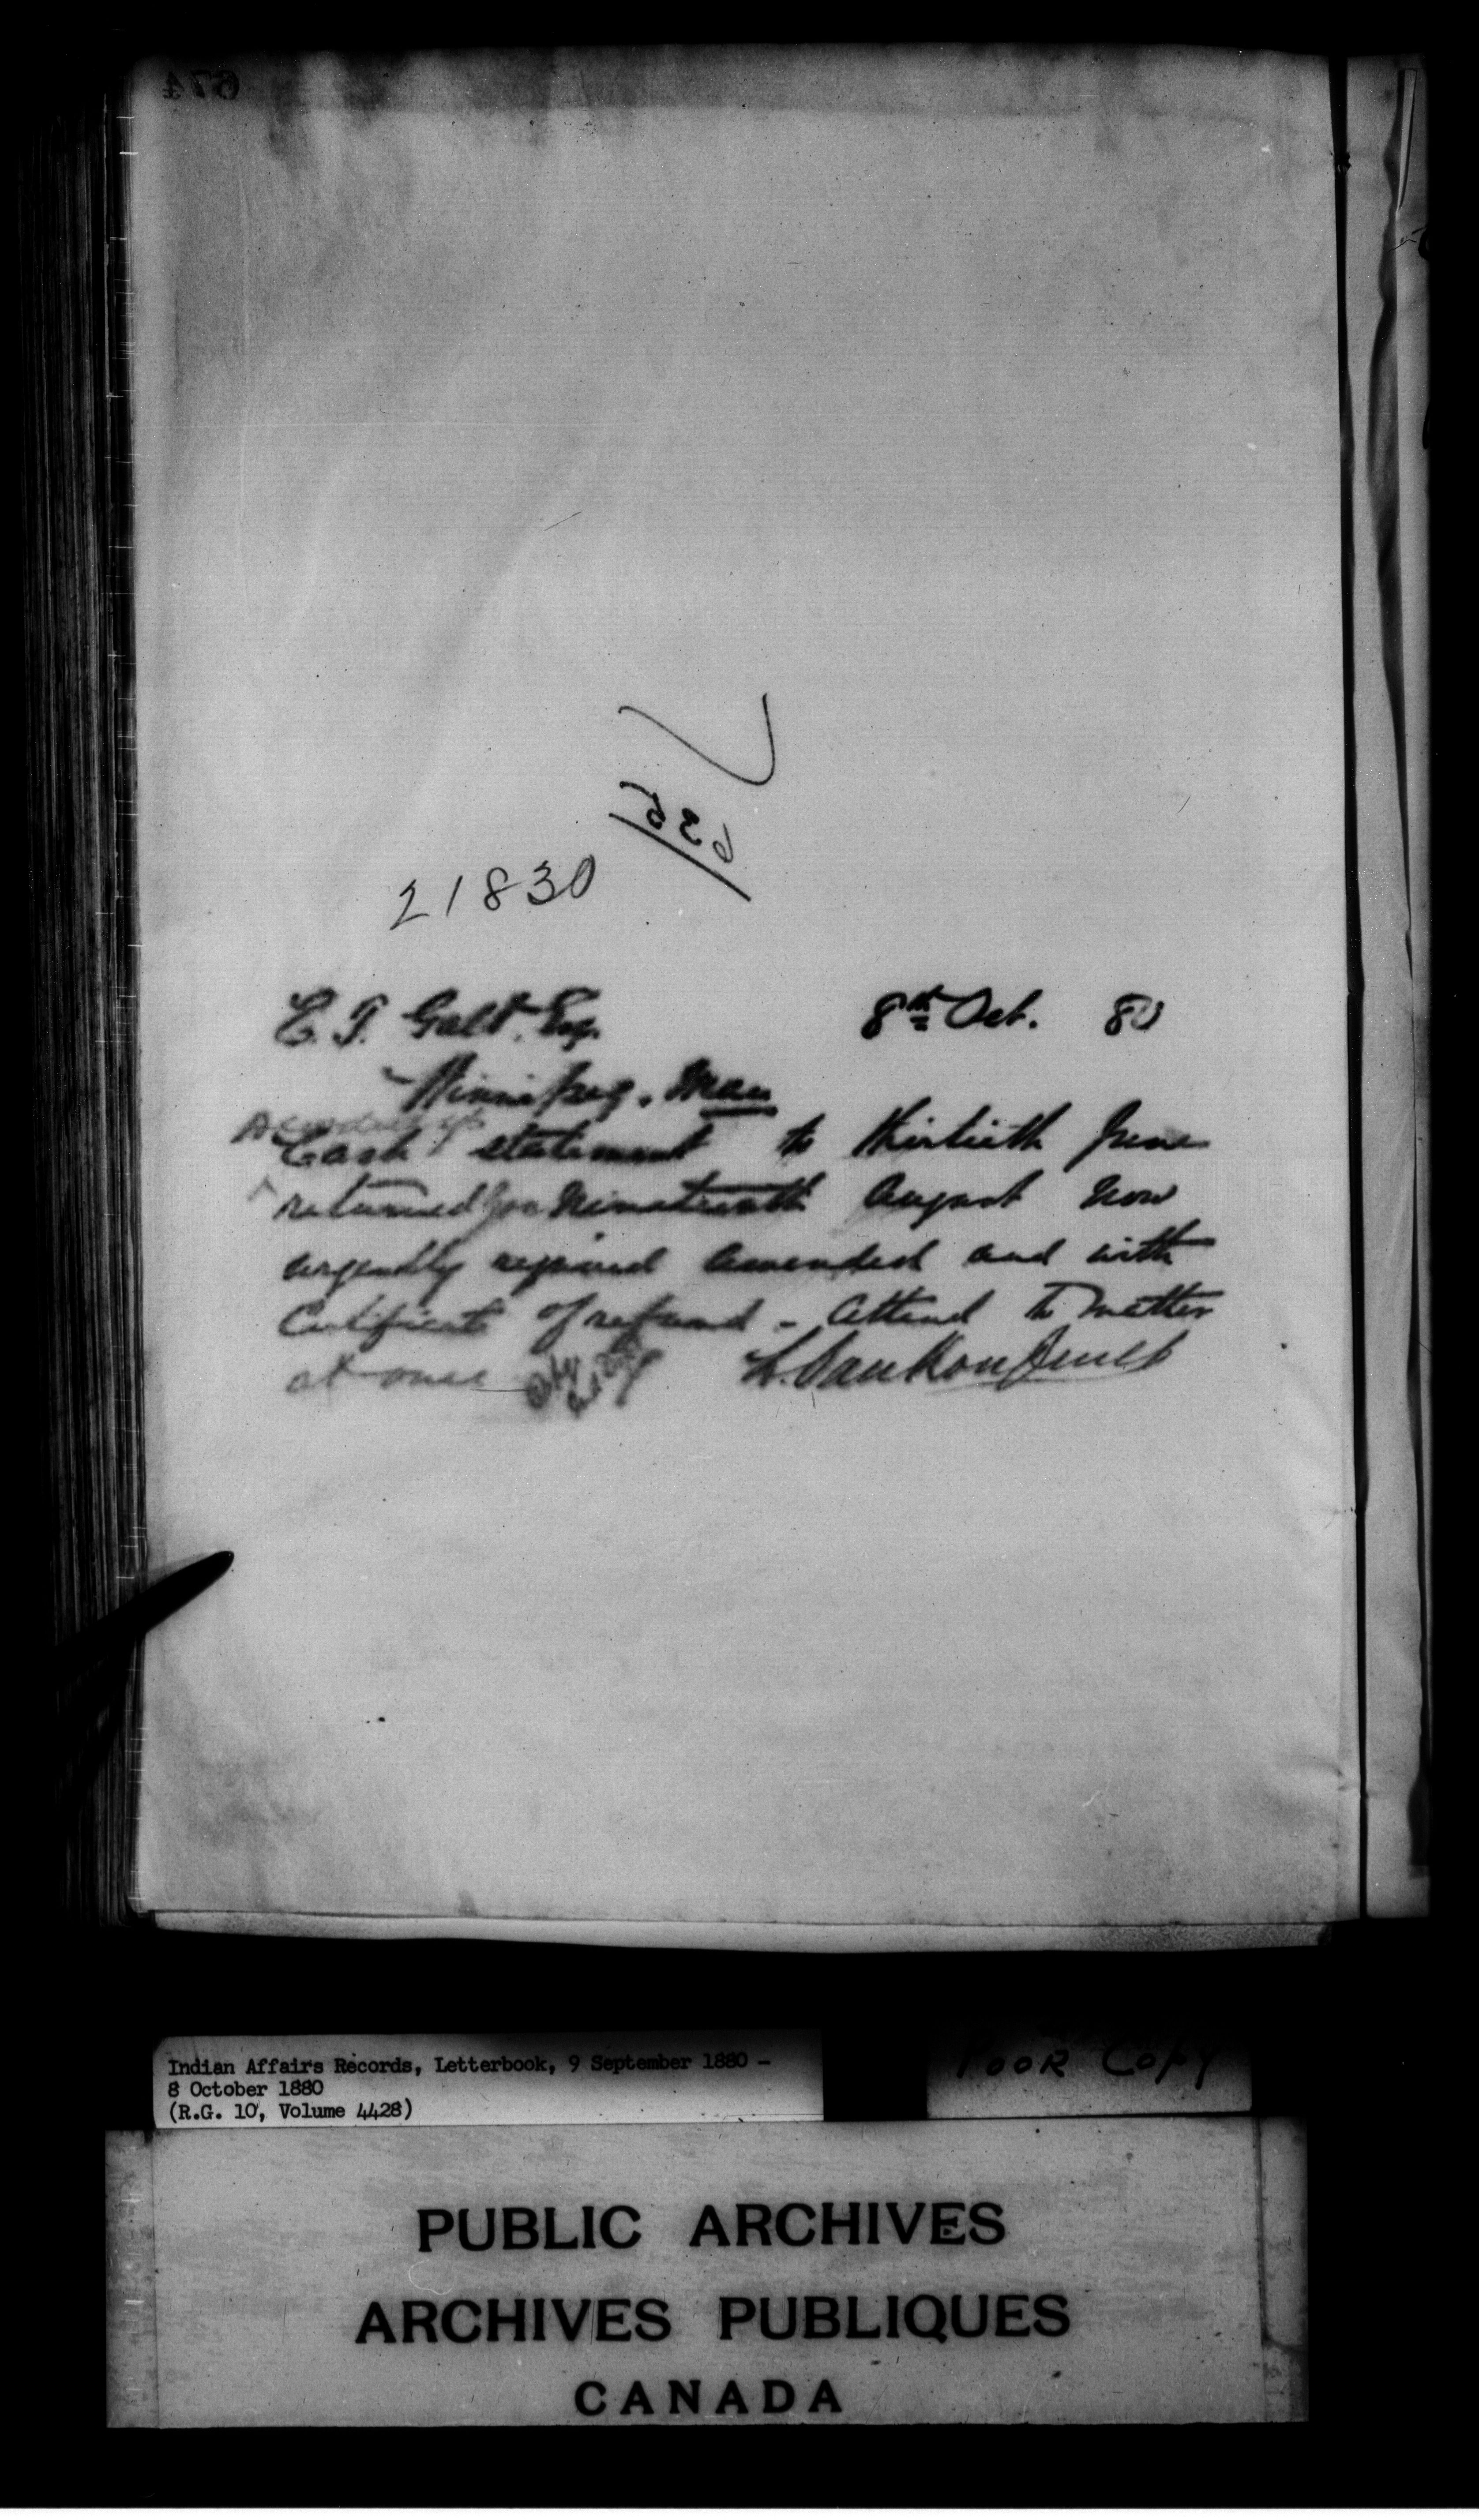 674
635
21830
E. T. Galt. Esq. 8th Oct. 80
Winnipeg. Man
Cash statement to thirtieth June
returned for Nineteenth August now
urgently required amended and with
Certificate of refund - Attend to matter
at once L. VanKoughnet
Indian Affairs Records, Letterbook, 9 September 1880 -
8 October 1880
(R.G. 10, Volume 4428)
Poor Copy
PUBLIC ARCHIVES
ARCHIVES PUBLIQUES
CANADA